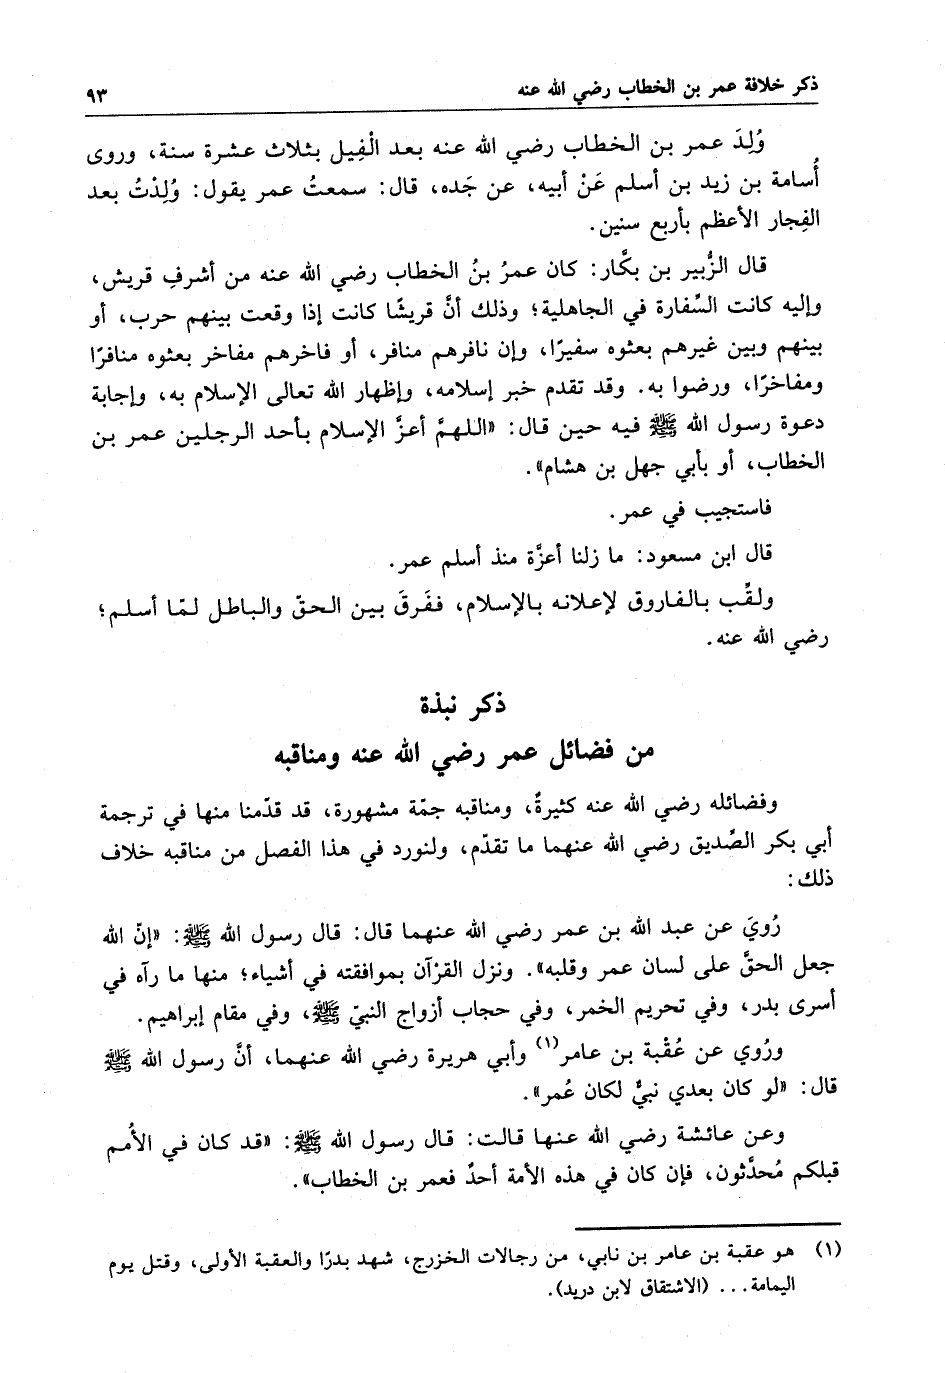 ذكر خلافة عمر بن الخطاب رضي الله عنه ٩٣
وُلِدَ عمر بن الخطاب رضي الله عنه بعد الْفِيل بثلاث عشرة سنة، وروى
أُسامة بن زيد بن أسلم عَنْ أبيه، عن جَده، قال: سمعتُ عمر يقول: وُلِدْتُ بعد
الفِجار الأعظم بأربع سنين.
قال الزُّبير بن بكَّار: كان عمرُ بنُ الخطاب رضي الله عنه من أشرفِ قريش،
وإليه كانت السِّفارة في الجاهلية؛ وذلك أنَّ قريشًا كانت إذا وقعت بينهم حرب، أو
بينهم وبين غيرهم بعثوه سفيرًا، وإن نافرهم منافر، أو فاخرهم مفاخر بعثوه منافرًا
ومفاخرًا، ورضوا به. وقد تقدم خبر إسلامه، وإظهار الله تعالى الإسلام به، وإجابة
دعوة رسول الله ﷺ فيه حين قال: «اللهمَّ أعزَّ الإسلام بأحد الرجلين عمر بن
الخطاب، أو بأبي جهل بن هشام».
فاستجيب في عمر.
قال ابن مسعود: ما زلنا أعزَّة منذ أسلم عمر.
ولقِّب بالفاروق لإعلانه بالإسلام، ففَرقَ بين الحقّ والباطل لمّا أسلم؛
رضي الله عنه.
ذكر نبذة
من فضائل عمر رضي الله عنه ومناقبه
وفضائله رضي الله عنه كثيرةٌ، ومناقبه جمّة مشهورة، قد قدّمنا منها في ترجمة
أبي بكر الصِّديق رضي الله عنهما ما تقدّم، ولنورد في هذا الفصل من مناقبه خلاف
ذلك:
رُويَ عن عبد الله بن عمر رضي الله عنهما قال: قال رسول الله ﷺ: «إنّ الله
جعل الحقَّ على لسان عمر وقلبه». ونزل القرْآن بموافقته في أشياء؛ منها ما رآه في
أسرى بدر، وفي تحريم الخمر، وفي حجاب أزواج النبيّ ﷺ، وفي مقام إبراهيم.
ورُوي عن عُقْبة بن عامر(١) وأبي هريرة رضي الله عنهما، أنَّ رسول الله ﷺ
قال: «لو كان بعدي نبيٌّ لكان عُمر».
وعن عائشة رضي الله عنها قالت: قال رسول الله ﷺ: «قد كان في الأُمم
قبلكم مُحدَّثون، فإن كان في هذه الأمة أحدٌ فعمر بن الخطاب».
(١) هو عقبة بن عامر بن نابي، من رجالات الخزرج، شهد بدرًا والعقبة الأولى، وقتل يوم
اليمامة... (الاشتقاق لابن دريد).